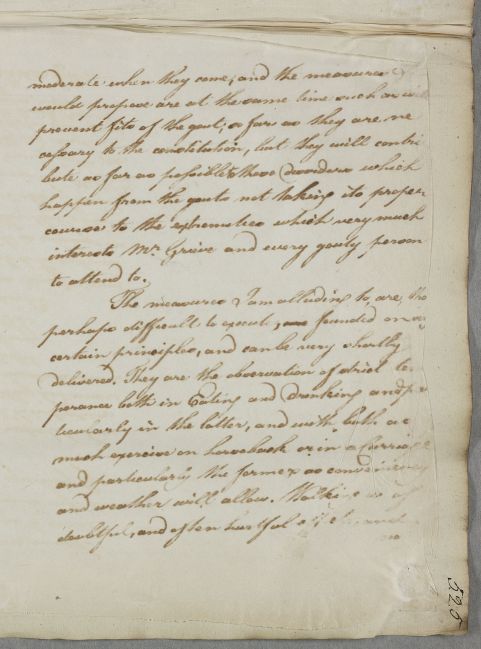 moderate when they come, and the measures I
would propose are at the same time such as will
prevent fits of the gout; as far as they are ne
cessary to the constitution, but they will contri
bute as far as possible those disorders which
happen from the gouts not taking its proper
course to the extremeties which very much
interests Mr. Grieve and every gouty person
to attend to.
The measures I am alluding to, are, tho
perhaps difficult to execute, founded on
certain principles, and can be very shortly
delivered. They are the observation of strict te
perance both in Eating and Drinking and pa
ticularly in the latter, and with both as
much exercise on horseback or in a Carriage
and particularly the former as conveniency
and weather will allow. Walking is of
doubtful, and often hurtful
525